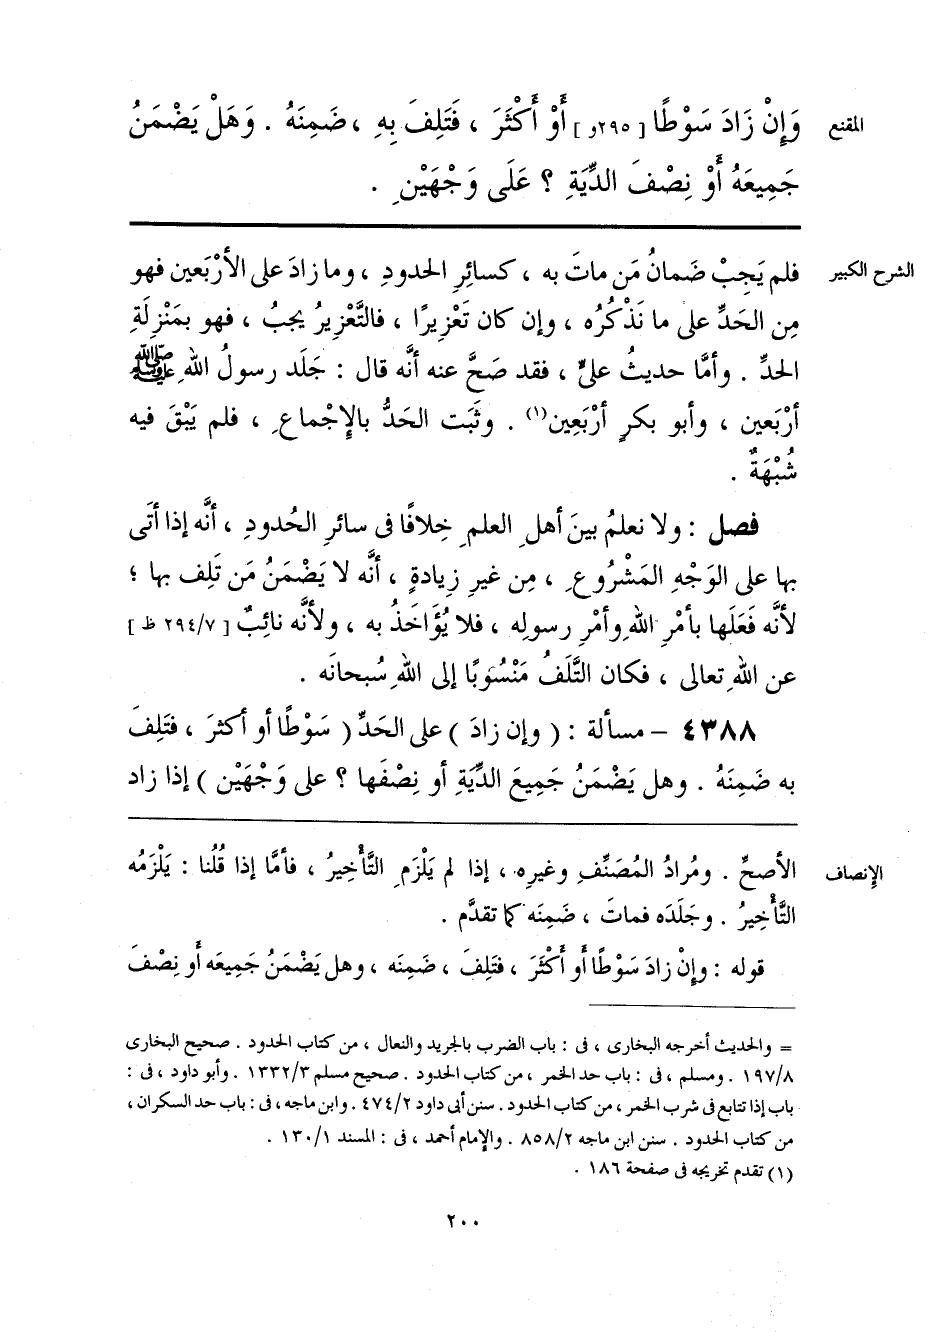 المقنع وَإِنْ زَادَ سَوْطًا [ ٢٩٥و ] أَوْ أَكْثَرَ ، فَتَلِفَ بِهِ ، ضَمِنَهُ . وَهَلْ يَضْمَنُ
جَمِيعَهُ أَوْ نِصْفَ الدِّيَةِ ؟ عَلَى وَجْهَيْنِ .
الشرح الكبير فلم يَجِبْ ضَمانُ مَن ماتَ به ، كسائِرِ الحدودِ ، وما زادَ على الأرْبَعين فهو
مِن الحَدِّ على ما نَذْكُرُه ، وإن كان تَعْزِيرًا ، فالتَّعْزِيرُ يجبُ ، فهو بمَنْزِلَةِ
الحدِّ . وأمَّا حديثُ علىٍّ ، فقد صَحَّ عنه أنَّه قال : جَلَد رسولُ اللهِ ﷺ
أرْبَعين ، وأبو بكرٍ أرْبَعِين(١) . وثَبَت الحَدُّ بالإِجْماعِ ، فلم يَبْقَ فيه
شُبْهَةٌ .
فصل : ولا نعلمُ بينَ أهلِ العلمِ خِلافًا فى سائرِ الحُدودِ ، أنَّه إذا أتَى
بها على الوَجْهِ المَشْرُوعِ ، مِن غيرِ زِيادةٍ ، أنَّه لا يَضْمَنُ مَن تَلِف بها ؛
لأنَّه فَعَلَها بأمْرِ اللهِ وأمْرِ رسولِه ، فلا يُؤَاخَذُ به ، ولأنَّه نائِبٌ [ ٢٩٤/٧ ظ ]
عن اللهِ تعالى ، فكان التَّلَفُ مَنْسُوبًا إلى اللهِ سُبحانَه .
٤٣٨٨ – مسألة : ( وإن زادَ ) على الحَدِّ ( سَوْطًا أو أكثرَ ، فتَلِفَ
به ضَمِنَهُ . وهل يَضْمَنُ جَمِيعَ الدِّيَةِ أو نِصْفَها ؟ على وَجْهَيْن ) إذا زاد
الإنصاف الأصحِّ . ومُرادُ المُصَنِّفِ وغيرِه ، إذا لم يَلْزَمِ التَّأْخِيرُ ، فأمَّا إذا قُلْنا : يَلْزَمُه
التَّأْخِيرُ . وجَلَدَه فماتَ ، ضَمِنَه كما تقدَّم .
قوله : وإِنْ زادَ سَوْطًا أو أَكْثَرَ ، فتَلِفَ ، ضَمِنَه ، وهل يَضْمَنُ جَمِيعَه أو نِصْفَ
= والحديث أخرجه البخارى ، فى : باب الضرب بالجريد والنعال ، من كتاب الحدود . صحيح البخارى
١٩٧/٨ . ومسلم ، فى : باب حد الخمر ، من كتاب الحدود . صحيح مسلم ١٣٣٢/٣ . وأبو داود ، فى :
باب إذا تتابع فى شرب الخمر ، من كتاب الحدود . سنن أبى داود ٤٧٤/٢ . وابن ماجه ، فى : باب حد السكران ،
من كتاب الحدود . سنن ابن ماجه ٨٥٨/٢ . والإمام أحمد ، فى : المسند ١٣٠/١ .
(١) تقدم تخريجه فى صفحة ١٨٦ .
٢٠٠